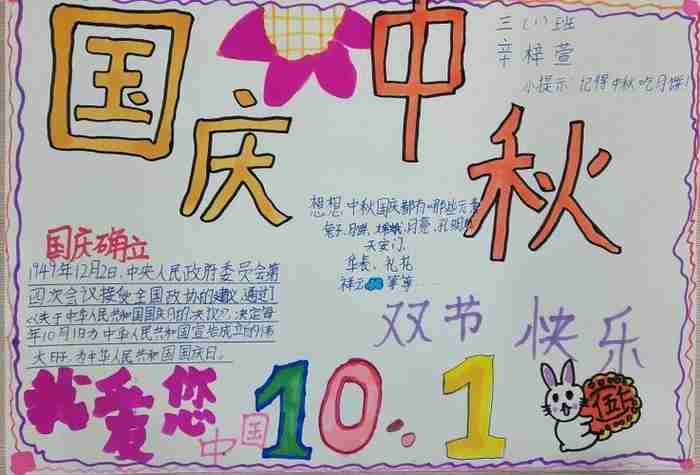 国庆
中秋
三（1）班
辛梓萱
小提示 记得中秋吃月饼！
想想 中秋国庆都有哪些元素
兔子、月饼、嫦娥、月亮、孔明
天安门、
军长、礼花
祥云 等等……
国庆确立
1949年12月2日，中央人民政府委员会第
四次会议接受全国政协的建议，通过了
《关于中华人民共和国国庆日的决议》，决定每
年10月1日为中华人民共和国宣告成立的伟
大日子，为中华人民共和国国庆日。
双节 快乐
我爱您
中国
10.1
伍仁